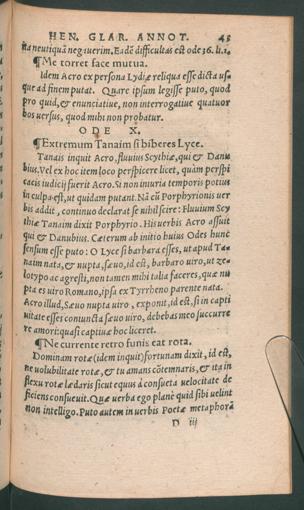 HEN. GLAR. ANNOT. 43
na neutiquã negauerim. Eadē difficultas est ode 36. li.1.
¶Me torret face mutua.
Idem Acro ex persona Lydiæ reliqua esse dicta us-
que ad finem putat. Quare ipsum legisse puto, quod
pro quid, & enunciatiue, non interrogatiue quatuor
hos uersus, quod mihi non probatur.
ODE X.
¶Extremum Tanaim si biberes Lyce.
Tanais inquit Acro, fluuius Scythiæ, qui & Danu
bius. Vel ex hoc item loco perspicere licet, quàm perspi
cacis iudicij fuerit Acro. Si non iniuria temporis potius
in culpa est, ut quidam putant. Nã cũ Porphyrionis uer
bis addit, continuo declarat se nihil scire: Fluuium Scy
thiæ Tanaim dixit Porphyrio. His uerbis Acro assuit
qui & Danubius. Cæterum ab initio huius Odes hunc
sensum esse puto: O Lyce si barbara esses, ut apud Ta-
naim nata, & nupta, sæuo, id est, barbaro uiro, ut ze-
lotypo ac agresti, non tamen mihi talia faceres, quæ nu
pta es uiro Romano, ipsa ex Tyrrheno parente nata.
Acro illud, Sæuo nupta uiro, exponit, id est, si in capti
uitate esses coniuncta sæuo uiro, debebas meo succurre
re amori: quasi captiuæ hoc liceret.
¶Ne currente retro funis eat rota.
Dominam rotæ (idem inquit) fortunam dixit, id est,
ne uolubilitate rotæ, & tu amans cõtemnaris, & ita in
flexu rotæ lædaris sicut equus à consueta uelocitate de
ficiens consueuit. Quæ uerba ego planè quid sibi uelint
non intelligo. Puto autem in uerbis Poetæ metaphorã
D iij